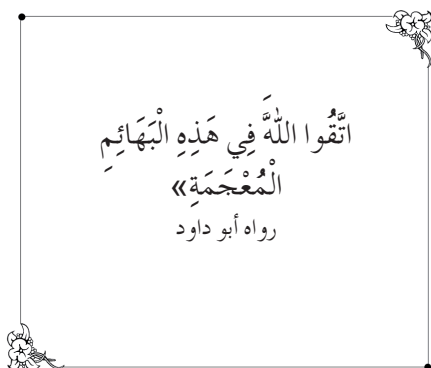 اتَّقُوا اللهَ فِي هَذِهِ الْبَهَائِمِ
الْمُعْجَمَةِ»
رواه أبو داود